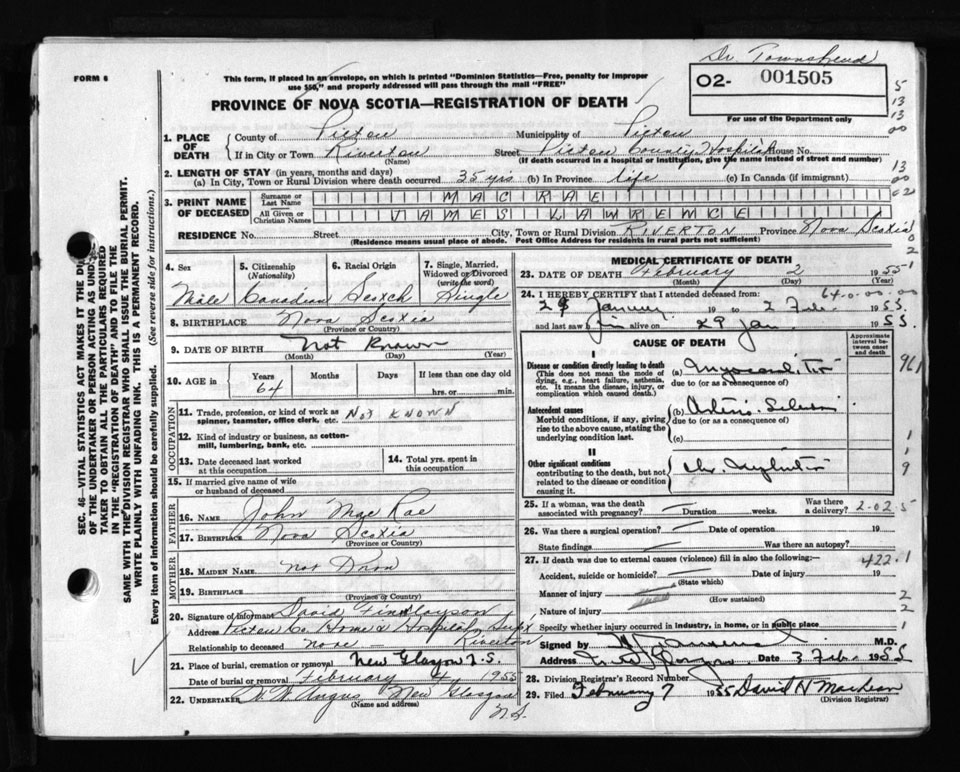 Dr. Townshend
FORM 6
This form, if placed in an envelope, on which is printed "Dominion Statistics—Free, penalty for improper use $50," and properly addressed will pass through the mail "FREE"
02- 001505
For use of the Department only
PROVINCE OF NOVA SCOTIA—REGISTRATION OF DEATH
1. PLACE OF DEATH
County of Pictou Municipality of Pictou
If in City or Town Riverton Street Pictou County Hospital House No.
(Name) (If death occurred in a hospital or institution, give the name instead of street and number)
2. LENGTH OF STAY (in years, months and days)
(a) In City, Town or Rural Division where death occurred 35 yrs (b) In Province life (c) In Canada (if immigrant)
3. PRINT NAME OF DECEASED
Surname or Last Name MAC RAE
All Given or Christian Names JAMES LAWRENCE
RESIDENCE No. Street City, Town or Rural Division RIVERTON Province Nova Scotia
(Residence means usual place of abode. Post Office Address for residents in rural parts not sufficient)
4. Sex Male
5. Citizenship (Nationality) Canadian
6. Racial Origin Scotch
7. Single, Married, Widowed or Divorced (write the word) Single
8. BIRTHPLACE Nova Scotia
(Province or Country)
9. DATE OF BIRTH Not Known
(Month) (Day) (Year)
10. AGE in Years Months Days If less than one day old
64 hrs. or min.
OCCUPATION
11. Trade, profession, or kind of work as spinner, teamster, office clerk, etc. NOT KNOWN
12. Kind of industry or business, as cotton-mill, lumbering, bank, etc.
13. Date deceased last worked at this occupation
14. Total yrs. spent in this occupation
15. If married give name of wife or husband of deceased
FATHER
16. NAME John Mac Rae
17. BIRTHPLACE Nova Scotia
(Province or Country)
MOTHER
18. MAIDEN NAME not Known
19. BIRTHPLACE
(Province or Country)
20. Signature of informant David Findlayson
Address Pictou Co. Home & Hospital Supt
Relationship to deceased none Riverton
21. Place of burial, cremation or removal New Glasgow N.S.
Date of burial or removal February 4 1955
22. UNDERTAKER New Glasgow
(Name and address) N.S.
MEDICAL CERTIFICATE OF DEATH
23. DATE OF DEATH February 2 1955
(Month) (Day)
64-0-00-00
24. I HEREBY CERTIFY that I attended deceased from:
29 January to 2 Feb. 1955
and last saw him alive on 29 Jan 1955.
CAUSE OF DEATH
Approximate interval between onset and death
I
Disease or condition directly leading to death (This does not mean the mode of dying, e.g., heart failure, asthenia, etc. It means the disease, injury, or complication which caused death.)
(a) Myocarditis
due to (or as a consequence of)
Antecedent causes
Morbid conditions, if any, giving rise to the above cause, stating the underlying condition last.
(b) Arterio-Sclerosis
due to (or as a consequence of)
(c)
II
Other significant conditions contributing to the death, but not related to the disease or condition causing it.
Chr. Nephritis
25. If a woman, was the death associated with pregnancy? Duration weeks. Was there a delivery?
26. Was there a surgical operation? Date of operation 19
State findings Was there an autopsy?
27. If death was due to external causes (violence) fill in also the following:—
422.1
Accident, suicide or homicide? Date of injury 19
(State which)
Manner of injury
(How sustained)
Nature of injury
Specify whether injury occurred in industry, in home, or in public place
Signed by M.D.
Address Date 3 Feb. 1955
28. Division Registrar's Record Number
29. Filed February 7 1955 David H MacLean
(Division Registrar)
SEC. 46—VITAL STATISTICS ACT MAKES IT THE
OF THE UNDERTAKER OR PERSON ACTING AS
TAKER TO OBTAIN ALL THE PARTICULARS REQUIRED
IN THE "REGISTRATION OF DEATH" AND TO FILE THE
SAME WITH THE DIVISION REGISTRAR WHO SHALL ISSUE THE BURIAL PERMIT.
WRITE PLAINLY WITH UNFADING INK. THIS IS A PERMANENT RECORD.
Every item of information should be carefully supplied. (See reverse side for instructions.)